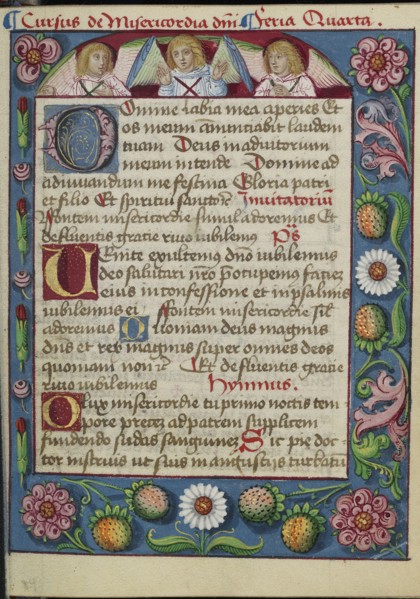 Cursus de Misericordia dni Feria Quarta.
Domine labia mea aperies Et
os meum annuntiabit laudem
tuam Deus in adiutorium
meum intende Domine ad
adiuvandum me festina Gloria patri
et filio Et spiritui sancto Invitatoriu
Fontem misericordie simul adoremus Et
defluentis gratie rivo iubilemus Ps
Venite exultemus dno iubilemus
deo salutari nro preocupemus faciez
eius in confessione et in psalmis
iubilemus ei Fontem misericordie sil
adoremus Quoniam deus magnus
dns et rex magnus super omnes deos
quoniam non Et defluentis gratie
rivo iubilemus Hymnus.
O lux misericordie tu primo noctis tem
pore precez ad patrem supplicem
fundendo sudas sanguinez Sic pie doc
tor instruis ut suis in angustijs turbatu